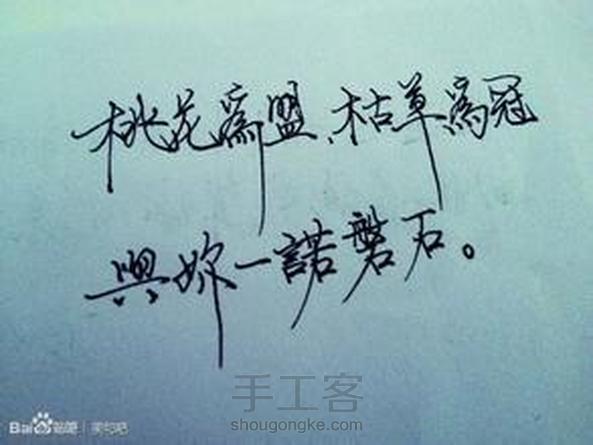 桃花為盟、枯草為冠
與妳一諾磐石。
手工客
shougongke.com
Bai 贴吧 | 美句吧